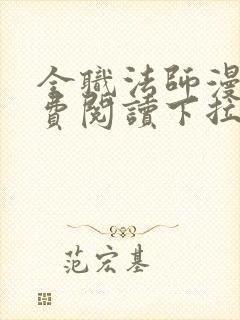 全職法師漫
費閱讀下拉
范宏基